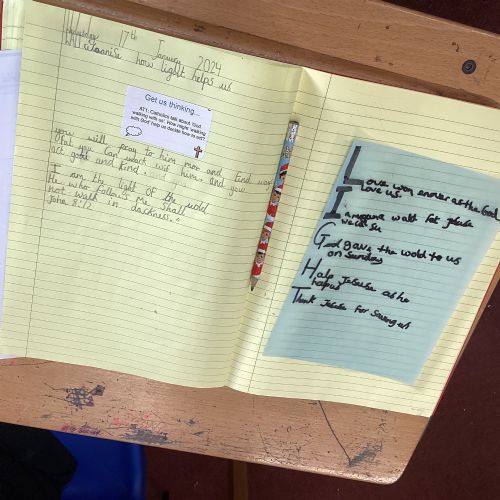 Wednesday 17th January 2024
how light helps us
Get us thinking....
AT1. Catholics talk about 'God
walking with us'. How might 'walking
with God' help us decide how to act?
you will pray to him mor and find war
that you can work wit him, and you
act good and kind.
I am the light of the wold
He who follows me shall
not walk in darkness."
John 8:12
Love won as the God
Love us.
I walk fot Jesuse
God gave the wold to us
on Sunday
Halp Jesuse as he
helpus
Thank Jesuse for Saveing us